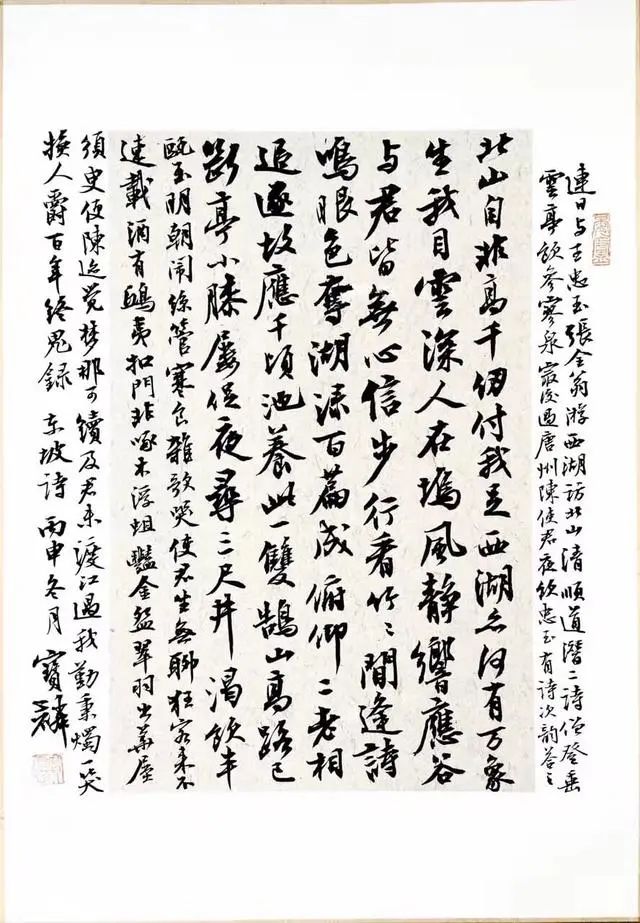 連日与王忠玉張全翁游西湖訪北山清順道潛二诗僧登垂
雲亭飲參寥泉最後過唐州陳使君夜飲忠玉有诗次韵答之
北山自非高千仞付我足西湖亦何有万象
生我目雲深人在塢風静響應谷
与君皆無心信步行看竹〻間逢詩
鳴眼色奪湖渌百篇成俯仰二老相
追逐故應千頃池養此一雙鵠山高路已
斷亭小膝屡促夜尋三尺井渴飲半
甌玉明朝閙絲管寒食雜歌哭使君坐無聊狂客来不
速載酒有鴟夷扣門非啄木浮蛆灩金盌翠羽出華屋
須臾便陳迹覺梦那可續及君未渡江過我勤秉燭一笑
換人爵百年終鬼録 东坡诗 丙申冬月 寶麟